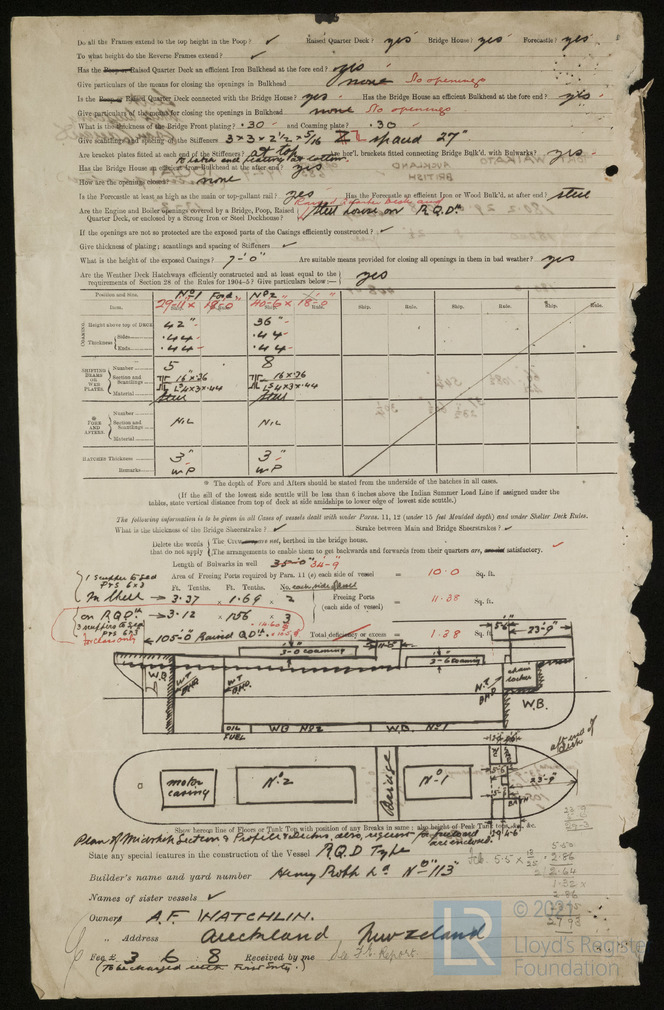 Do all the Frames extend to the top height in the Poop? ✓ Raised Quarter Deck? yes Bridge House? yes Forecastle? yes
To what height do the Reverse Frames extend? ✓
Has the Poop or Raised Quarter Deck an efficient Iron Bulkhead at the fore end? yes
Give particulars of the means for closing the openings in Bulkhead none No openings
Is the Poop or Raised Quarter Deck connected with the Bridge House? yes Has the Bridge House an efficient Bulkhead at the fore end? yes
Give particulars of the means for closing the openings in Bulkhead none No openings
What is the thickness of the Bridge Front plating? .30 and Coaming plate? .30
Give scantlings and spacing of the Stiffeners 3 × 3 × 2½ = 5/16 spaced 27"
Are bracket plates fitted at each end of the Stiffeners? at top Are hor'l. brackets fitted connecting Bridge Bulk'd. with Bulwarks? yes
Has the Bridge House an Iron Bulkhead at the after end? yes
How are the openings closed? none
Is the Forecastle at least as high as the main or top-gallant rail? yes Has the Forecastle an efficient Iron or Wood Bulk'd. at after end? steel
Are the Engine and Boiler openings covered by a Bridge, Poop, Raised Quarter Deck, or enclosed by a Strong Iron or Steel Deckhouse? Steel house on R.Q.Dk
If the openings are not so protected are the exposed parts of the Casings efficiently constructed? ✓
Give thickness of plating; scantlings and spacing of Stiffeners ✓
What is the height of the exposed Casings? 7'-0" Are suitable means provided for closing all openings in them in bad weather? yes
Are the Weather Deck Hatchways efficiently constructed and at least equal to the requirements of Section 28 of the Rules for 1904-5? Give particulars below:— yes
Position and Size. No 1 Ford. No 2
Item. 29-11 × 18-0 40-6 × 18-0 Ship. Rule. Ship. Rule. Ship. Rule.
COAMING. Height above top of DECK 42" 36"
Thickness Sides .44 .44
Ends .44 .44
SHIFTING BEAMS OR WEB PLATES. Number 5 8
Section and Scantlings 16" × .36 16" × .36
Ls 4 × 3 × .44 Ls 4 × 3 × .44
Material Steel Steel
* FORE AND AFTERS. Number
Section and Scantlings NIL NIL
Material
HATCHES Thickness 3" 3"
Remarks W.P W.P
* The depth of Fore and Afters should be stated from the underside of the hatches in all cases.
(If the sill of the lowest side scuttle will be less than 6 inches above the Indian Summer Load Line if assigned under the
tables, state vertical distance from top of deck at side amidships to lower edge of lowest side scuttle.)
The following information is to be given in all Cases of vessels dealt with under Paras. 11, 12 (under 15 feet Moulded depth) and under Shelter Deck Rules.
What is the thickness of the Bridge Sheerstrake? ✓ Strake between Main and Bridge Sheerstrakes? ✓
Delete the words that do not apply The Crew are not, berthed in the bridge house.
The arrangements to enable them to get backwards and forwards from their quarters are, satisfactory. ✓
Length of Bulwarks in well 35-0" 34-9"
Area of Freeing Ports required by Para. 11 (e) each side of vessel = 10.0 Sq. ft.
Ft. Tenths. Ft. Tenths. No. each side of vessel
3.37 × 1.69 × 2 Freeing Ports (each side of vessel) = 11.38 Sq. ft.
on R.Q.Dk → 3.12 × 1.56 × 3
Total deficiency or excess = 1.38 Sq. ft.
105-0 Raised Q.Dk. 5-6" 23'-9"
3-0 coaming 3-6 coaming
W.B. W.T BHD. W.T BHD. chain locker W.T BHD W.B.
OIL FUEL W.B No 2 W.B. No 1
motor casing No 2 Bridge No 1 23'-9"
Show hereon line of Floors or Tank Top with position of any Breaks in same; also height of Peak Tank tops, &c.
Plan of Midship Section & Profile & Decks, also, request for freeboard are enclosed.
State any special features in the construction of the Vessel R.Q.D Type
Builder's name and yard number Henry Robb Ld No "113"
Names of sister vessels ✓
Owners A.F. HATCHLIN.
„ Address Auckland New Zeland
Fee £ 3 6 : 8 Received by me See F.E. Report
(To be charged with First Entry.)
© 2021
Lloyd's Register
Foundation